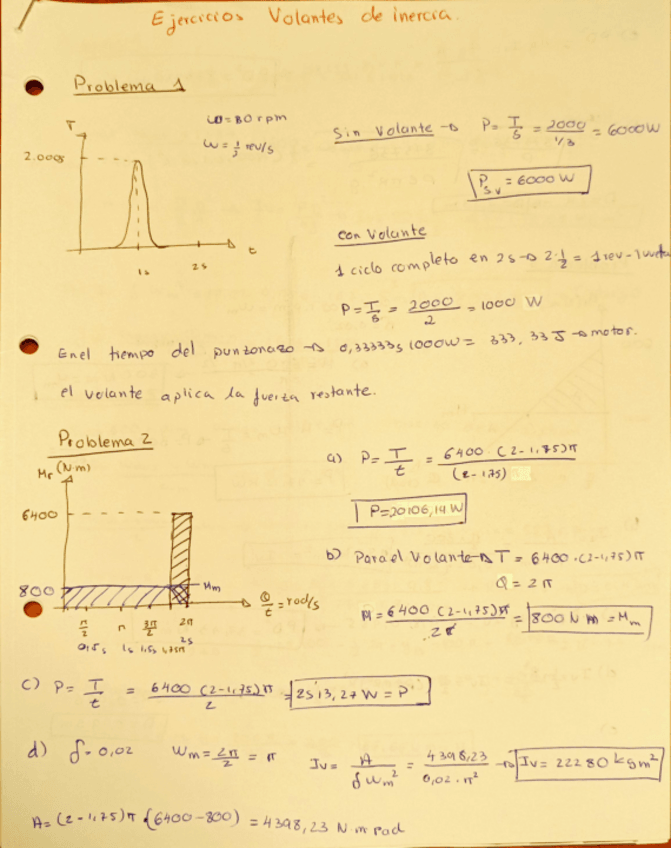 Ejercicios Volantes de inercia.
Problema 1
T
ω=80 rpm
ω=1/3 rev/s
2.000J
1s
2s
t
Sin Volante → P= T/t = 2000/(1/3) = 6000W
P_sv = 6000 W
Con Volante
1 ciclo completo en 2s → 2·1/2 = 1 rev - 1 vuelta
P= T/t = 2000/2 = 1000 W
En el tiempo del punzonazo → 0,33333s 1000W = 333,33 J → motor.
el volante aplica la fuerza restante.
Problema 2
Mr (N·m)
6400
800
Mm
π/2 π 3π/2 2π
0,5s 1s 1,5s 1,75π 2s
Q/t = rad/s
a) P= T/t = 6400·(2-1,75)π/(2-1,75)
P=20106,19 W
b) Para el Volante → T = 6400·(2-1,75)π
Q = 2π
M = 6400(2-1,75)π/2π = 800 N m = Mm
c) P= T/t = 6400(2-1,75)π/2 = 2513,27 W = P
d) δ=0,02 Wm = 2π/2 = π Iv= A/δWm² = 4398,23/0,02·π² → Iv= 22280 kgm²
A= (2-1,75)π·(6400-800) = 4398,23 N m rad